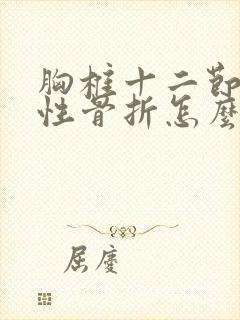 胸椎十二節
性骨折怎麼
屈慶